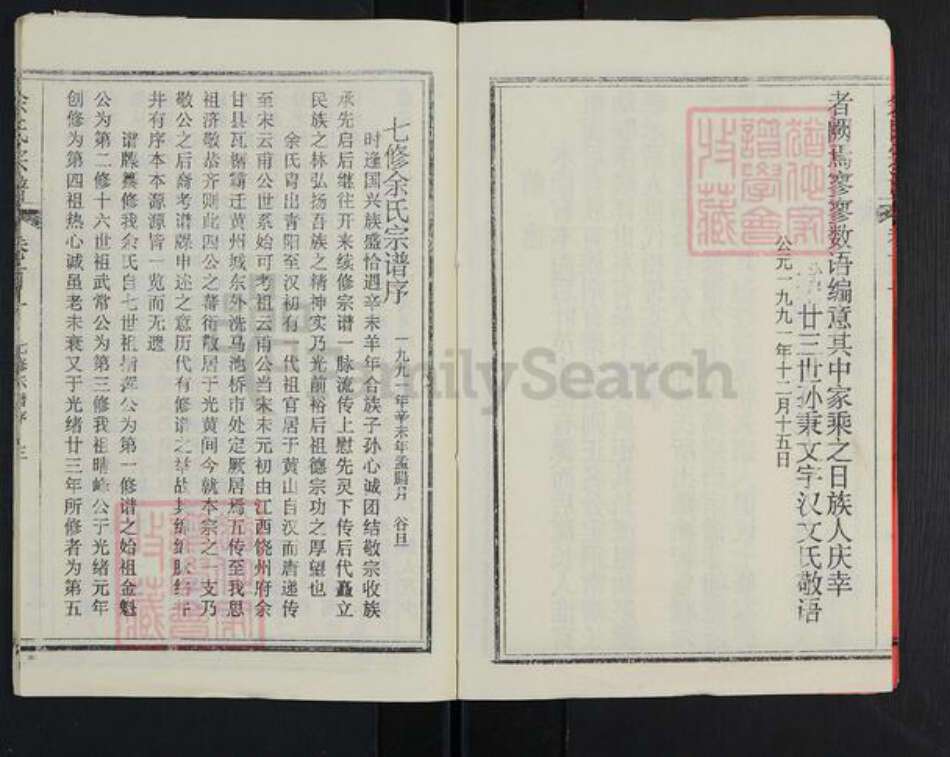 者阙焉寥寥数语编意其中家乘之日族人庆幸
廿三世孙秉文字汉文氏敬语
公元一九九一年十二月十五日
七修余氏宗谱序
一九九一年辛未年孟 月 谷旦
时逢国兴族盛恰遇辛未羊年合族子孙心诚团结敬宗收族
承先启后继往开来续修宗谱一脉流传上慰先灵下传后代矗立
民族之林弘扬吾族之精神实乃光前裕后祖德宗功之厚望也
余氏胄出青阳至汉初有一代祖官居于黄山自汉而唐递传
至宋云甫公世系始可考祖云甫公当宋末元初由江西饶州府余
甘县瓦锡霸迁黄州城东外洗马池桥市处定厥居焉五传至我思
祖济敬恭齐则此四公之蕃衍散居于光黄间今就本宗之一支乃
敬公之后裔考谱牒申述之意历代有修谱之举故其 脉络井
井有序本本源源皆一览而无遗
谱牒纂修我余氏自七世祖 公为第一修谱之始祖金魁
公为第二修十六世祖武常公为第三修我祖晴峰公于光绪元年
创修为第四祖热心诚虽老未衰又于光绪廿三年所修者为第五
余氏宗谱
卷首
七修宗谱序
三
FamilySearch